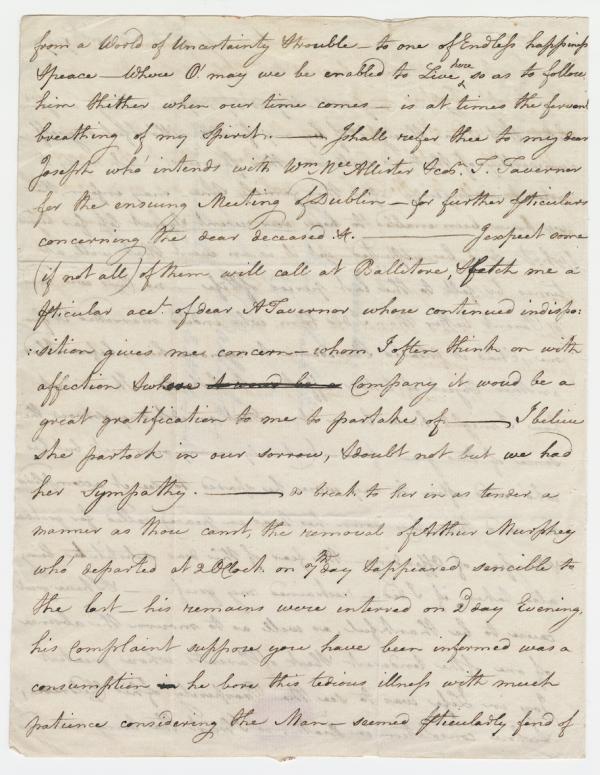 from a World of Uncertainty & trouble – to one of Endless happiness
& peace – Where O' may we be enabled to Live here, so as to follow
him thither when our time comes – is at times the fervent
breathing of my Spirit. — I shall refer thee to my dear
Joseph who' intends with Wm McAllister & cos. T. Tavernor
for the ensuing Meeting of Dublin – for further pticulars
concerning the dear deceased &. — I expect some
(if not all) of them will call at Ballitore, & fetch me a
pticular acct. of dear A Tavernor whose continued indispo:
:sition gives me concern – whom I often think on with
affection & whose it woud be a Company it woud be a
great gratification to me to partake of — I believe
she partook in our sorrow, & doubt not but we had
her Sympathy. — break to her in as tender a
manner as thou canst, the removal of Arthur Murphey
who' departed at 2 OClock on 7th day & appeared sencible to
the last – his remains were interred on 2d day Evening,
his complaint suppose you have been informed was a
consumption he bore this tedious illness with much
patience considering the Man – seemed pticularly fond of